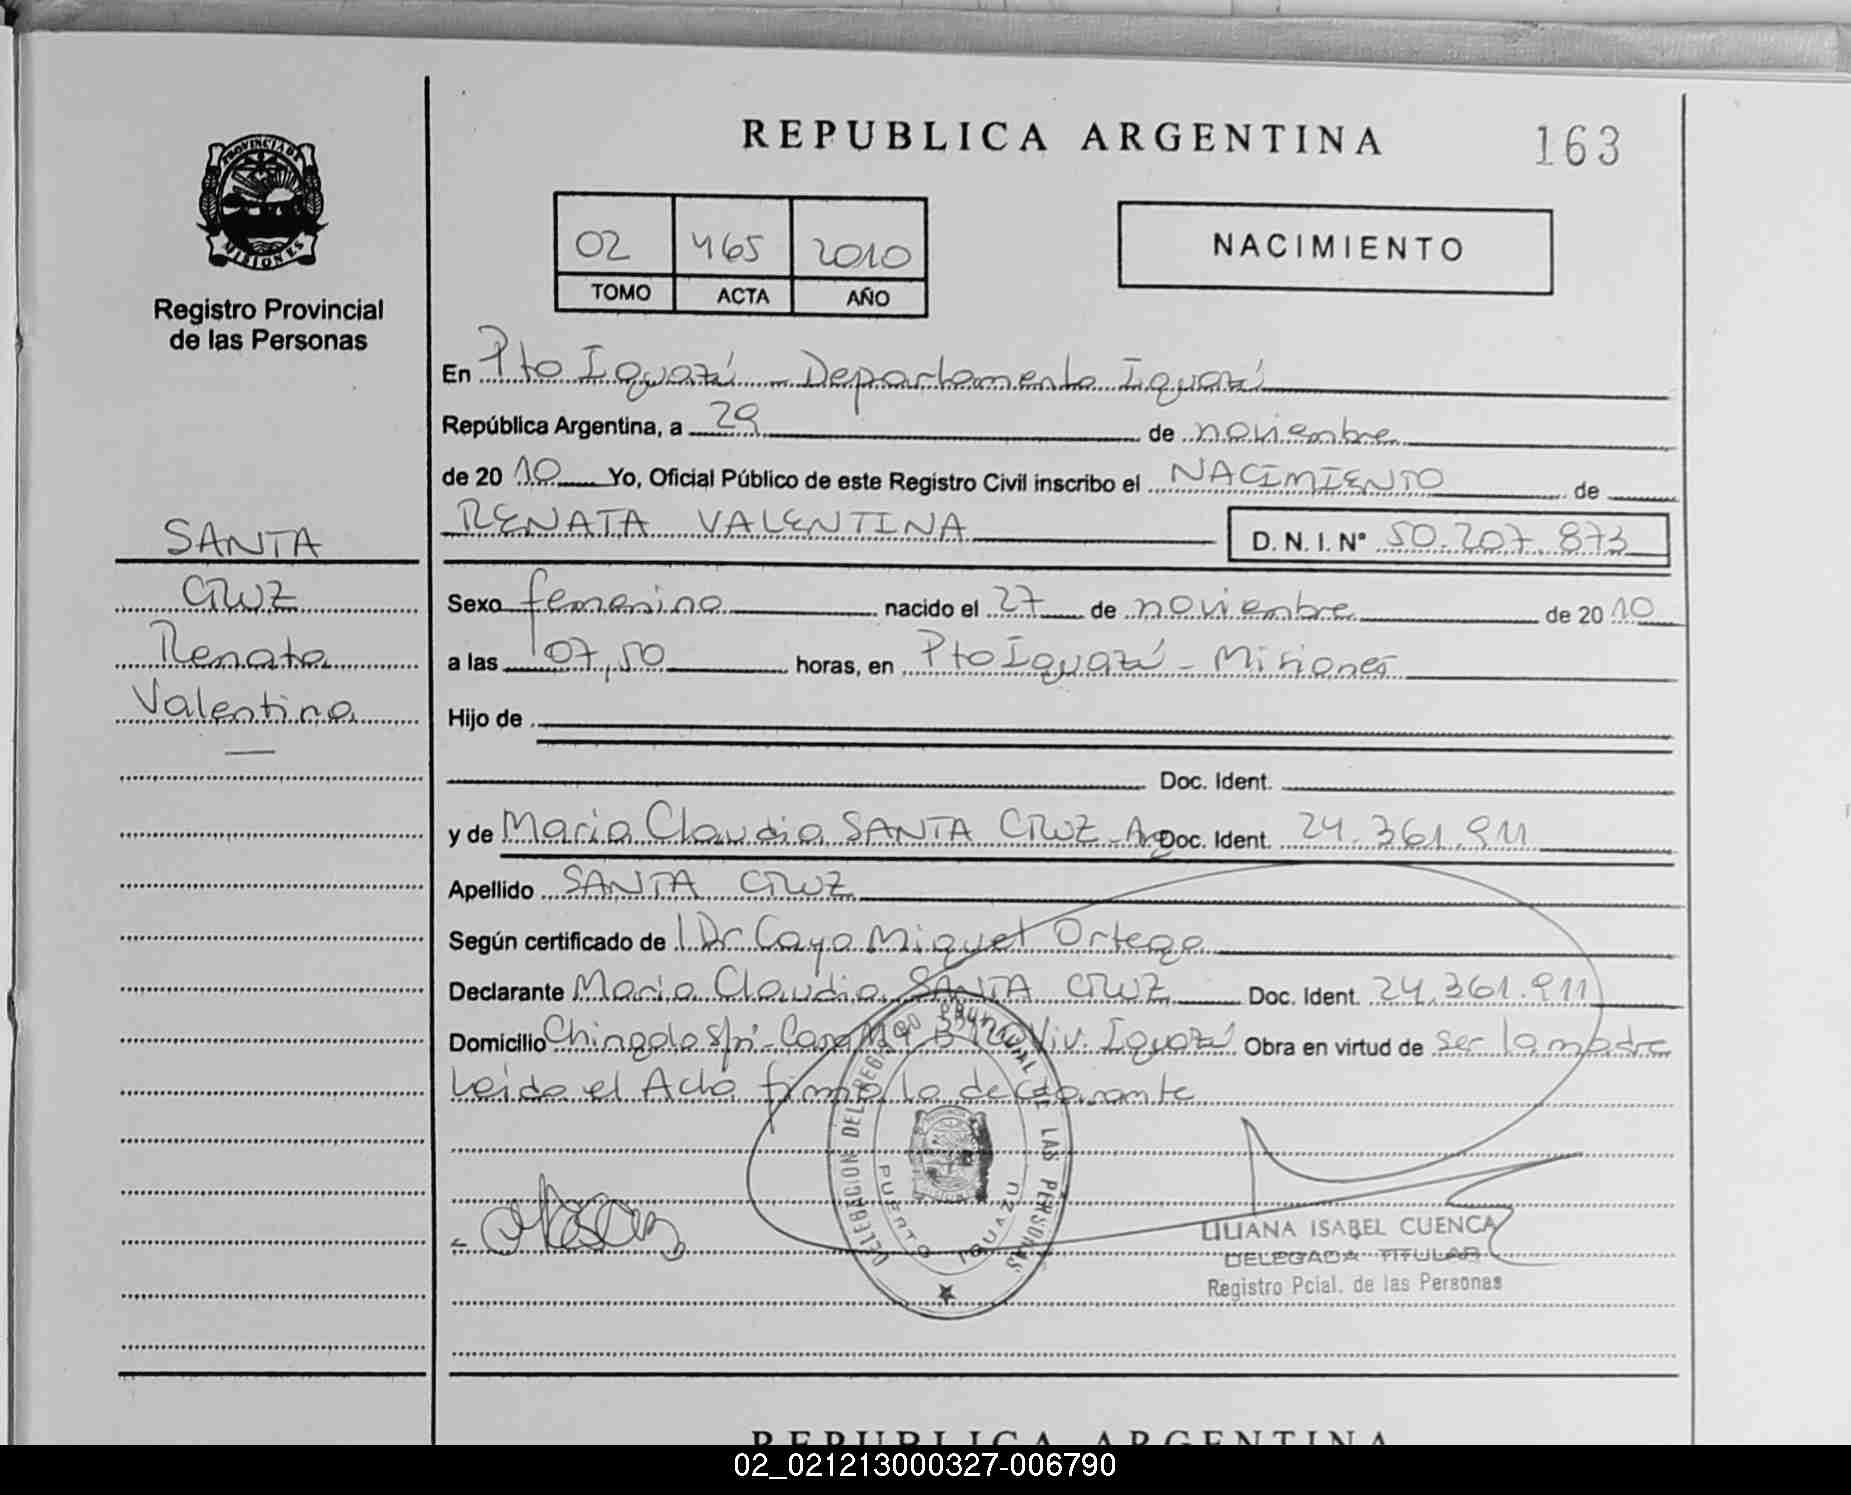 REPUBLICA ARGENTINA
163
PROVINCIA DE
MISIONES
Registro Provincial
de las Personas
02 465 2010
TOMO ACTA AÑO
NACIMIENTO
En Pto Iguazú - Departamento Iguazú
República Argentina, a 29 de noviembre
de 20 10 Yo, Oficial Público de este Registro Civil inscribo el NACIMIENTO de
RENATA VALENTINA D. N. I. N° 50.207.873
SANTA
CRUZ
Renata
Valentina
Sexo femenino nacido el 27 de noviembre de 20 10
a las 07,50 horas, en Pto Iguazú - Misiones
Hijo de
Doc. Ident.
y de Maria Claudia SANTA CRUZ - Arg Doc. Ident. 24.361.911
Apellido SANTA CRUZ
Según certificado de Dr Cayo Miguel Ortega
Declarante Maria Claudia SANTA CRUZ Doc. Ident. 24.361.911
Domicilio Chingolo s/n- Casa Viv. Iguazú Obra en virtud de ser la madre
Leida el Acta firma la declarante
DELEGACION DEL REGISTRO PROVINCIAL DE LAS PERSONAS
PUERTO IGUAZU
LILIANA ISABEL CUENCA
DELEGADA TITULAR
Registro Pcial. de las Personas
REPUBLICA ARGENTINA
02_021213000327-006790